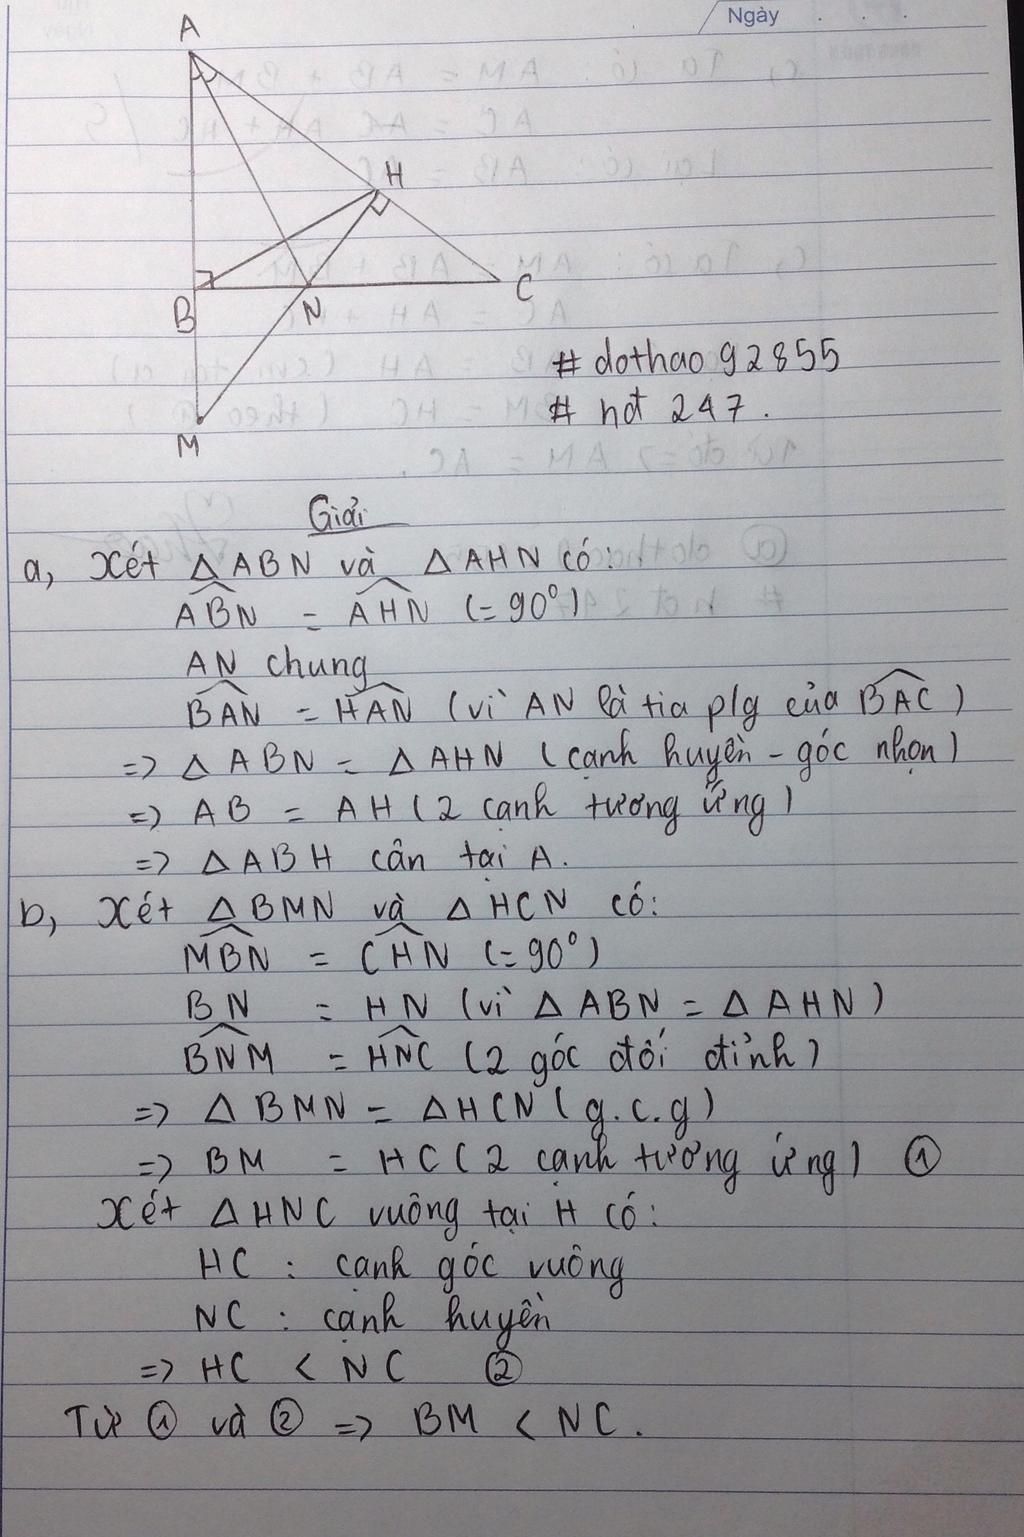 Ngày . . .
A
H
B
N
C
M
# dothao92855
# hot 247.
Giải
a, Xét △ABN và △AHN có:
ABN̂ = AHN̂ (=90°)
AN chung
BAN̂ = HAN̂ (vì AN là tia p/g của BAĈ)
=> △ABN = △AHN (cạnh huyền - góc nhọn)
=> AB = AH (2 cạnh tương ứng)
=> △ABH cân tại A.
b, Xét △BMN và △HCN có:
MBN̂ = CHN̂ (=90°)
BN = HN (vì △ABN = △AHN)
BNM̂ = HNĈ (2 góc đối đỉnh)
=> △BMN = △HCN (g.c.g)
=> BM = HC (2 cạnh tương ứng) ①
Xét △HNC vuông tại H có:
HC : cạnh góc vuông
NC : cạnh huyền
=> HC < NC ②
Từ ① và ② => BM < NC.